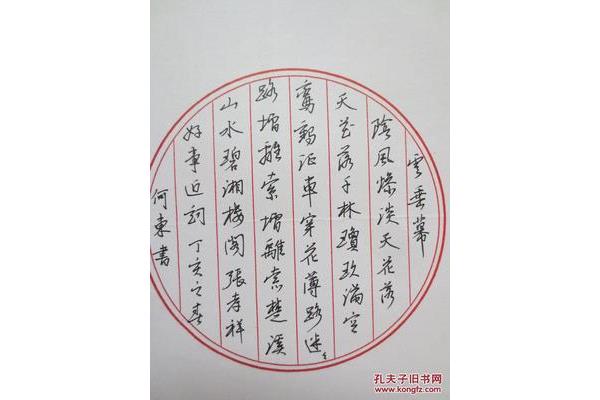 雲垂幕
陰風慘淡天花落
天花落千林瓊玖滿空
鸞鶴征車穿花薄路迷々
路增離索增離索楚溪
山水碧湘樓閣張孝祥
好事近詞丁亥之春
何東書
孔夫子旧书网